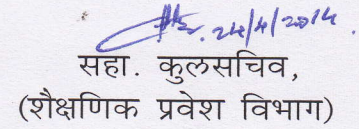 24/4/2014
सहा. कुलसचिव,
(शैक्षणिक प्रवेश विभाग)